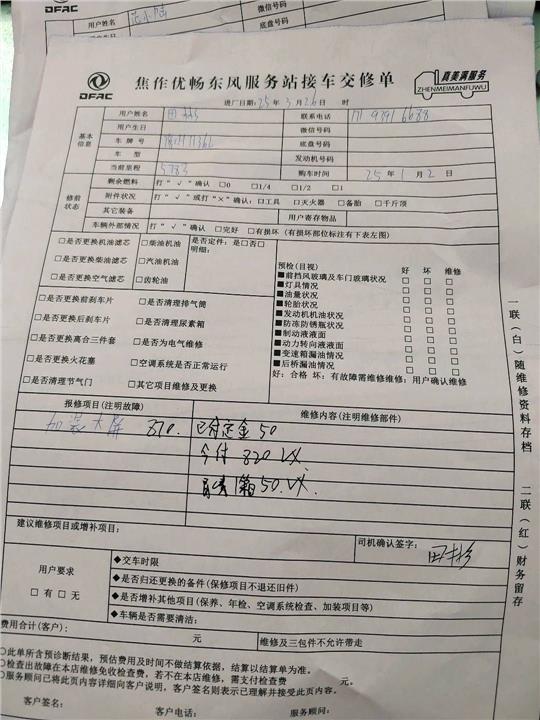 DFAC
用户姓名
用户生日
微信号码
底盘号码
DFAC
焦作优畅东风服务站接车交修单
真美满服务
ZHENMEIMANFUWU
进厂日期: 25年 3月 26日 时
基本信息
用户姓名 联系电话
用户生日 微信号码
车牌号 底盘号码
车型 发动机号码
当前里程 5783 购车时间 25年1月2日
修前状态
剩余燃料 打“√”确认 □0 □1/4 □1/2 □1
附件状况 打“√”或打“×”确认:□工具 □灭火器 □备胎 □千斤顶
其它装备 用户寄存物品
车辆外部情况 打“√”确认 □完好 □有损坏 (有损坏部位标注有下表左图)
□是否更换机油滤芯 □柴油机油 是否定件: 是□否□
明细:
□是否更换柴油滤芯 □汽油机油
□是否更换空气滤芯 □齿轮油
□是否更换前刹车片 □是否清理排气筒
□是否更换后刹车片 □是否清理尿素箱
□是否更换离合三件套 □是否为电气维修
□是否更换火花塞 □空调系统是否正常运行
□是否清理节气门 □其它项目维修及更换
预检(目视) 好 坏 维修
■前挡风玻璃及车门玻璃状况 □ □ □
■灯具情况 □ □ □
■油量状况 □ □ □
■轮胎状况 □ □ □
■发动机机油状况 □ □ □
■防冻防锈瓶状况 □ □ □
■制动液液面 □ □ □
■动力转向液液面 □ □ □
■变速箱漏油情况 □ □ □
■后桥漏油情况 □ □ □
好: 合格 坏: 有故障需维修维修: 用户确认维修
报修项目(注明故障) 维修内容(注明维修部件)
加装大屏 870. 已付定金50
今付 820 VX.
50.VX.
建议维修项目或增补项目:
司机确认签字:
用户要求
□有□无
◆交车时限
◆是否归还更换的备件(保修项目不退还旧件)
◆是否增补其他项目(保养、年检、空调系统检查、加装项目等)
◆车辆是否需要清洁:
费用合计(客户): 元 维修及三包件不允许带走
○此单所含预诊断结果,预估费用及时间不做结算依据,结算以结算单为准。
○检查出故障在本店维修免收检查费,若不在本店维修,需支付检查费 元。
○服务顾问已将此页内容详细向客户说明,客户签名则表示已理解并接受此页内容。
客户签名: 客户电话: 服务顾问:
一联(白)随维修资料存档
二联(红)财务留存